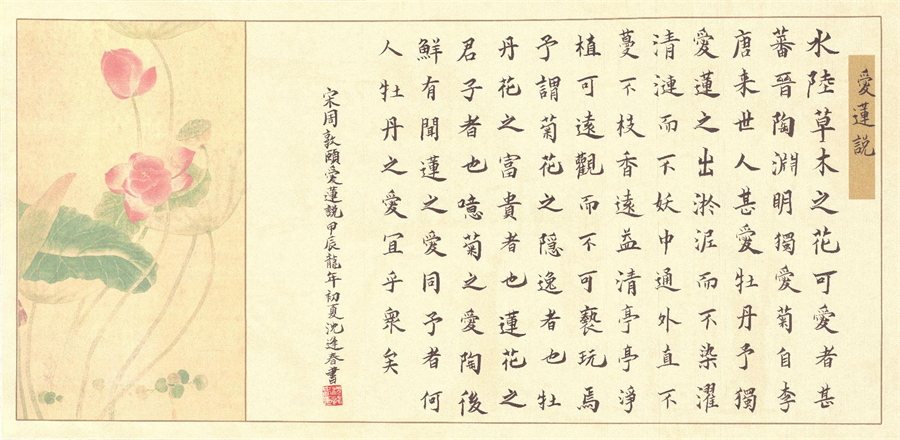 愛蓮説
水陸草木之花可愛者甚
蕃晉陶淵明獨愛菊自李
唐来世人甚愛牡丹予獨
愛蓮之出淤泥而不染濯
清漣而不妖中通外直不
蔓不枝香遠益清亭亭淨
植可遠觀而不可褻玩焉
予謂菊花之隱逸者也牡
丹花之富貴者也蓮花之
君子者也噫菊之愛陶後
鮮有聞蓮之愛同予者何
人牡丹之愛宜乎衆矣
宋周敦頤愛蓮説甲辰龍年初夏沈進春書